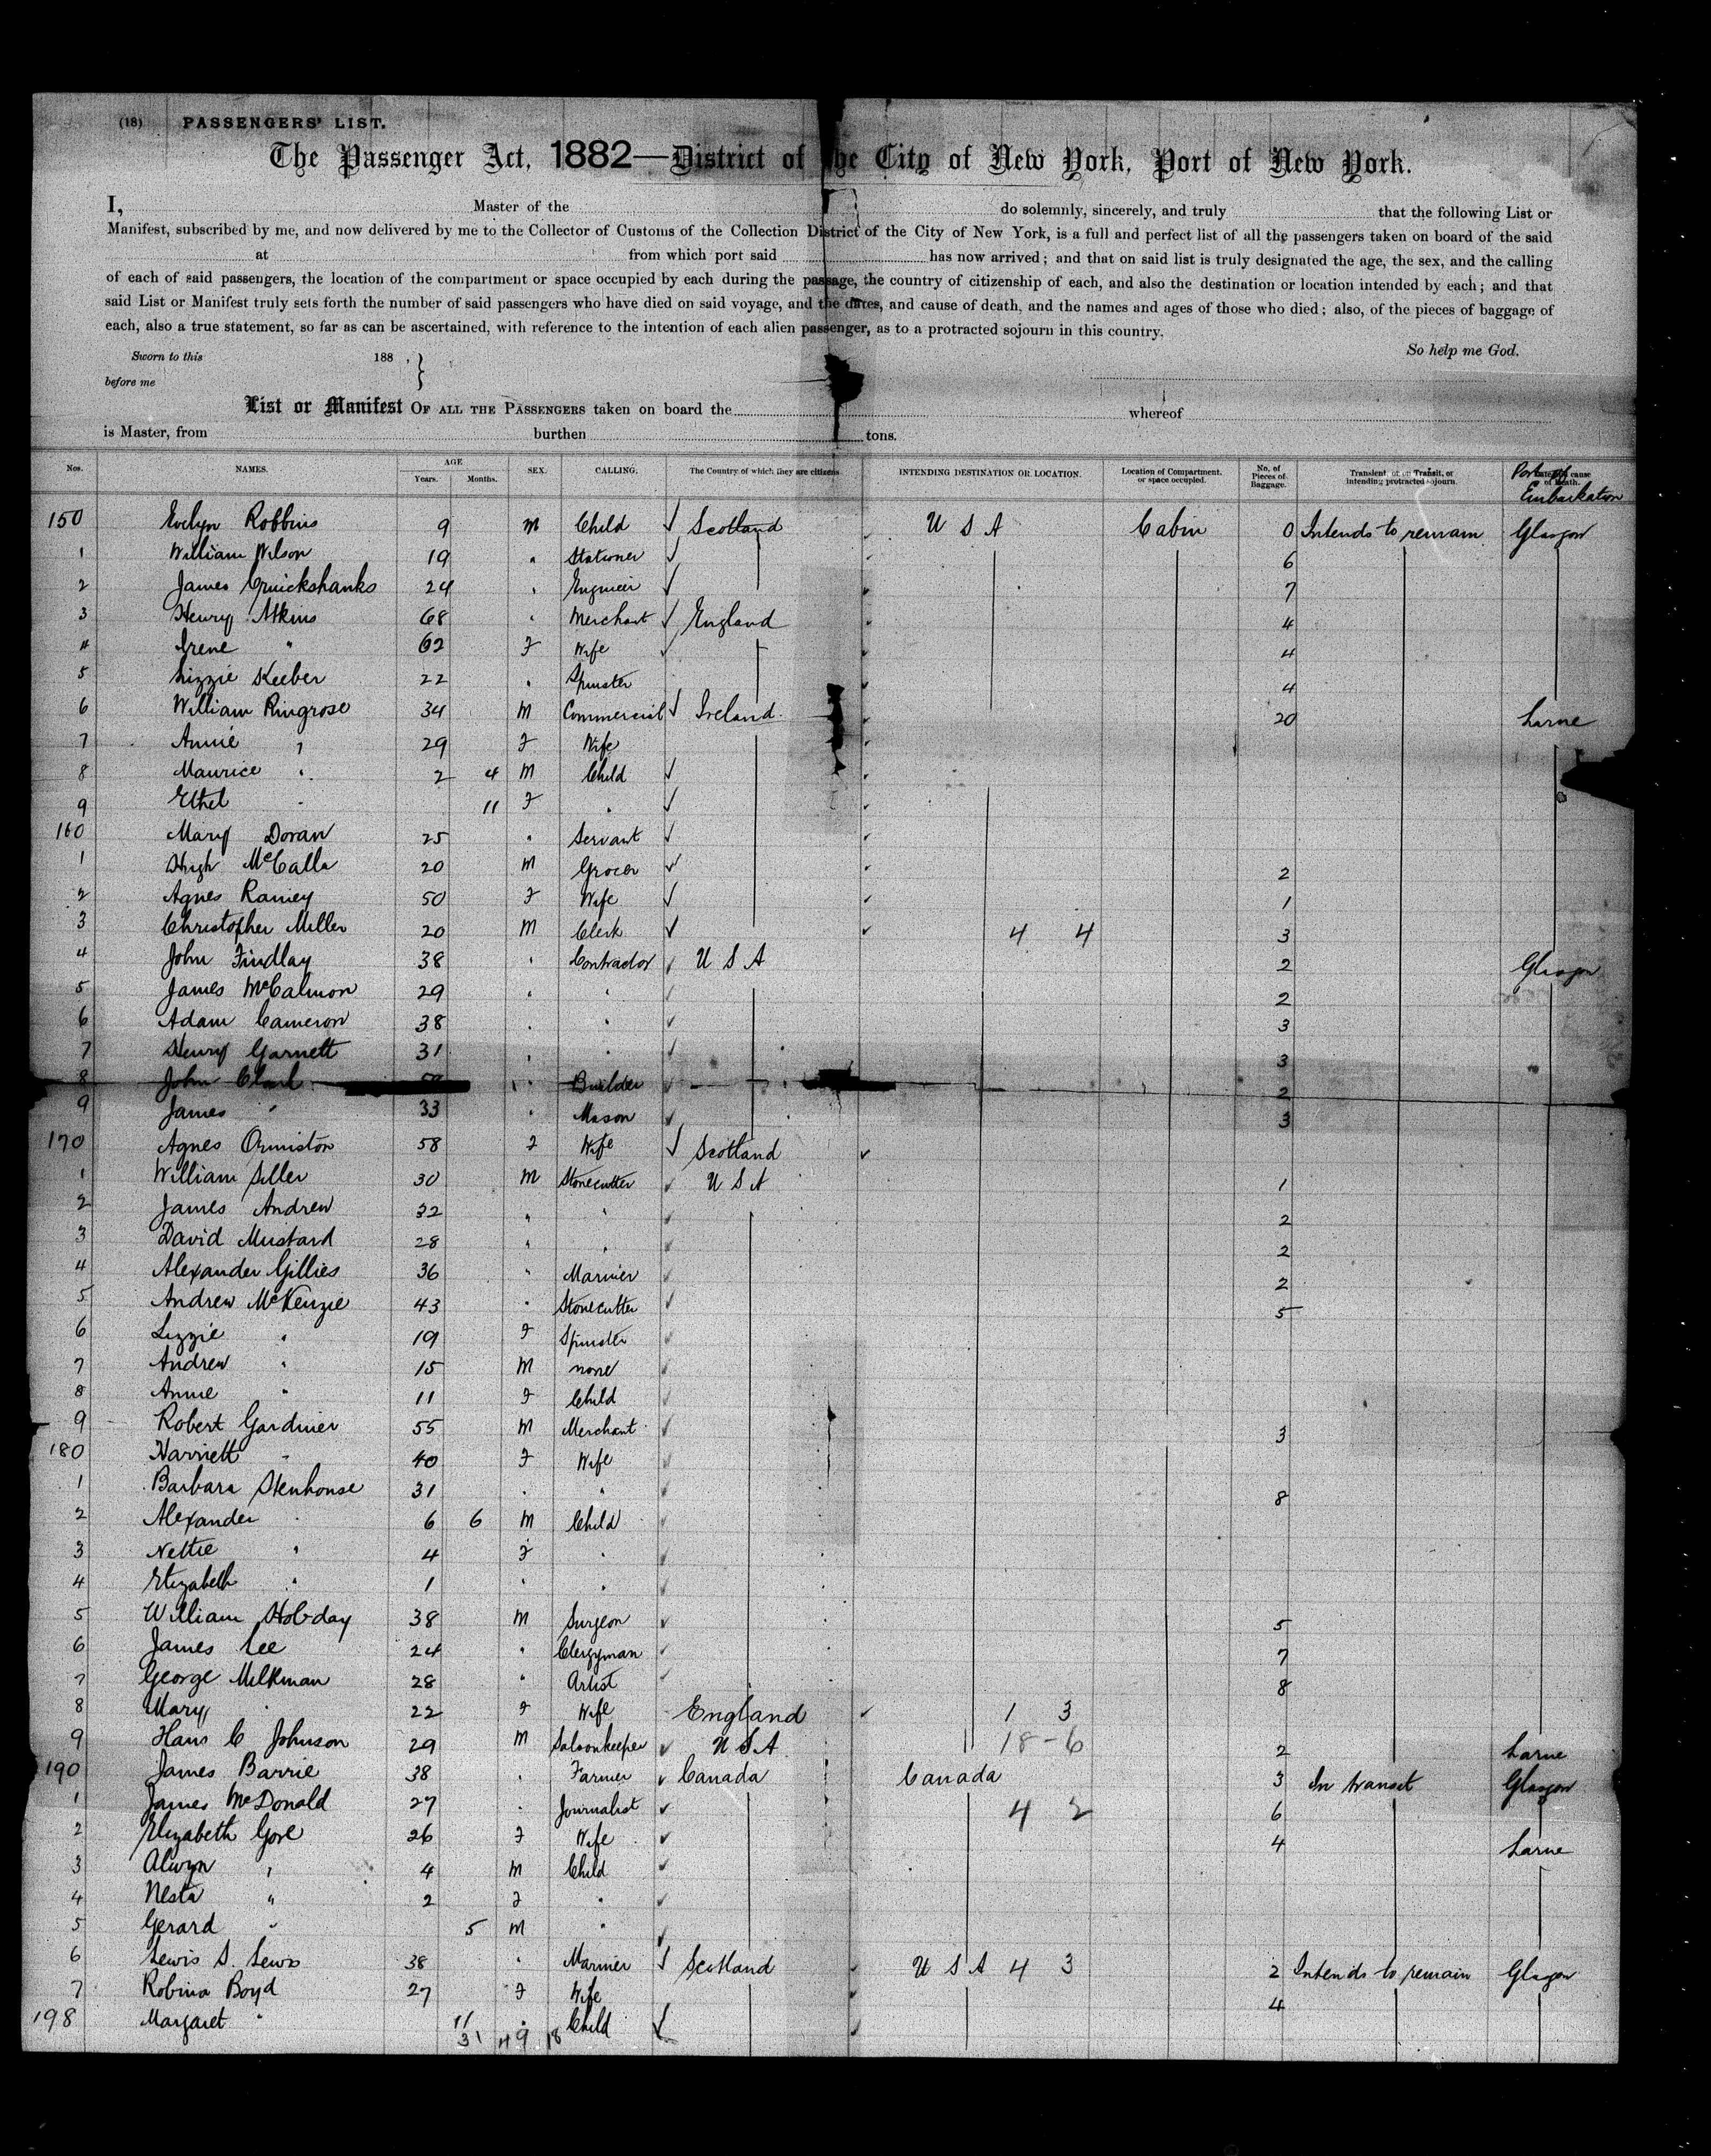 (18) PASSENGERS' LIST.
The Passenger Act, 1882—District of the City of New York, Port of New York.
I, Master of the do solemnly, sincerely, and truly that the following List or
Manifest, subscribed by me, and now delivered by me to the Collector of Customs of the Collection District of the City of New York, is a full and perfect list of all the passengers taken on board of the said
at from which port said has now arrived; and that on said list is truly designated the age, the sex, and the calling
of each of said passengers, the location of the compartment or space occupied by each during the passage, the country of citizenship of each, and also the destination or location intended by each; and that
said List or Manifest truly sets forth the number of said passengers who have died on said voyage, and the dates, and cause of death, and the names and ages of those who died; also, of the pieces of baggage of
each, also a true statement, so far as can be ascertained, with reference to the intention of each alien passenger, as to a protracted sojourn in this country.
So help me God.
Sworn to this 188 ,
before me
List or Manifest OF ALL THE PASSENGERS taken on board the whereof
is Master, from burthen tons.
Nos. NAMES. AGE Years. Months. SEX. CALLING. The Country of which they are citizens INTENDING DESTINATION OR LOCATION. Location of Compartment, or space occupied. No. of Pieces of Baggage. Transient or on Transit, or intending protracted sojourn. Port of Embarkation
150 Evelyn Robbins 9 M Child Scotland U S A Cabin 0 Intends to remain Glasgow
1 William Wilson 19 " Stationer 6
2 James Cruickshanks 24 " Engineer 7
3 Henry Atkins 68 " Merchant England 4
4 Irene " 62 F Wife 4
5 Lizzie Keeber 22 " Spinster 4
6 William Ringrose 34 M Commercial Ireland 20 Larne
7 Annie " 29 F Wife
8 Maurice " 2 4 M Child
9 Ethel " 11 F "
160 Mary Doran 25 " Servant
1 Hugh McCalla 20 M Grocer 2
2 Agnes Rainey 50 F Wife 1
3 Christopher Miller 20 M Clerk 4 4 3
4 John Findlay 38 " Contractor U S A 2 Glasgow
5 James McCalmon 29 " " 2
6 Adam Cameron 38 " " 3
7 Henry Garnett 31 " " 3
8 John Clark " Builder 2
9 James " 33 " Mason 3
170 Agnes Ormiston 58 F Wife Scotland
1 William Siller 30 M Stonecutter U S A 1
2 James Andrew 32 " " 2
3 David Mustard 28 " " 2
4 Alexander Gillies 36 " Mariner 2
5 Andrew McKenzie 43 " Stonecutter 5
6 Lizzie " 19 F Spinster
7 Andrew " 15 M none
8 Annie " 11 F Child
9 Robert Gardiner 55 M Merchant 3
180 Harriett " 40 F Wife
1 Barbara Stenhouse 31 " " 8
2 Alexander " 6 6 M Child
3 Nettie " 4 F "
4 Elizabeth " 1 " "
5 William Hobday 38 M Surgeon 5
6 James Lee 24 " Clergyman 7
7 George Milkman 28 " Artist 8
8 Mary " 22 F Wife England 1 3
9 Hans C Johnson 29 M Saloonkeeper U S A 18-6 2 Larne
190 James Barrie 38 " Farmer Canada Canada 3 In transit Glasgow
1 James McDonald 27 " Journalist 4 2 6
2 Elizabeth Gore 26 F Wife 4 Larne
3 Alwyn " 4 M Child
4 Nesta " 2 F "
5 Gerard " 5 M "
6 Lewis S. Lewis 38 " Mariner Scotland U S A 4 3 2 Intends to remain Glasgow
7 Robina Boyd 27 F Wife 4
198 Margaret " 11 " Child
31 49 18